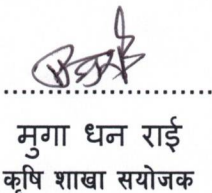 मुगा धन राई
कृषि शाखा सयोजक